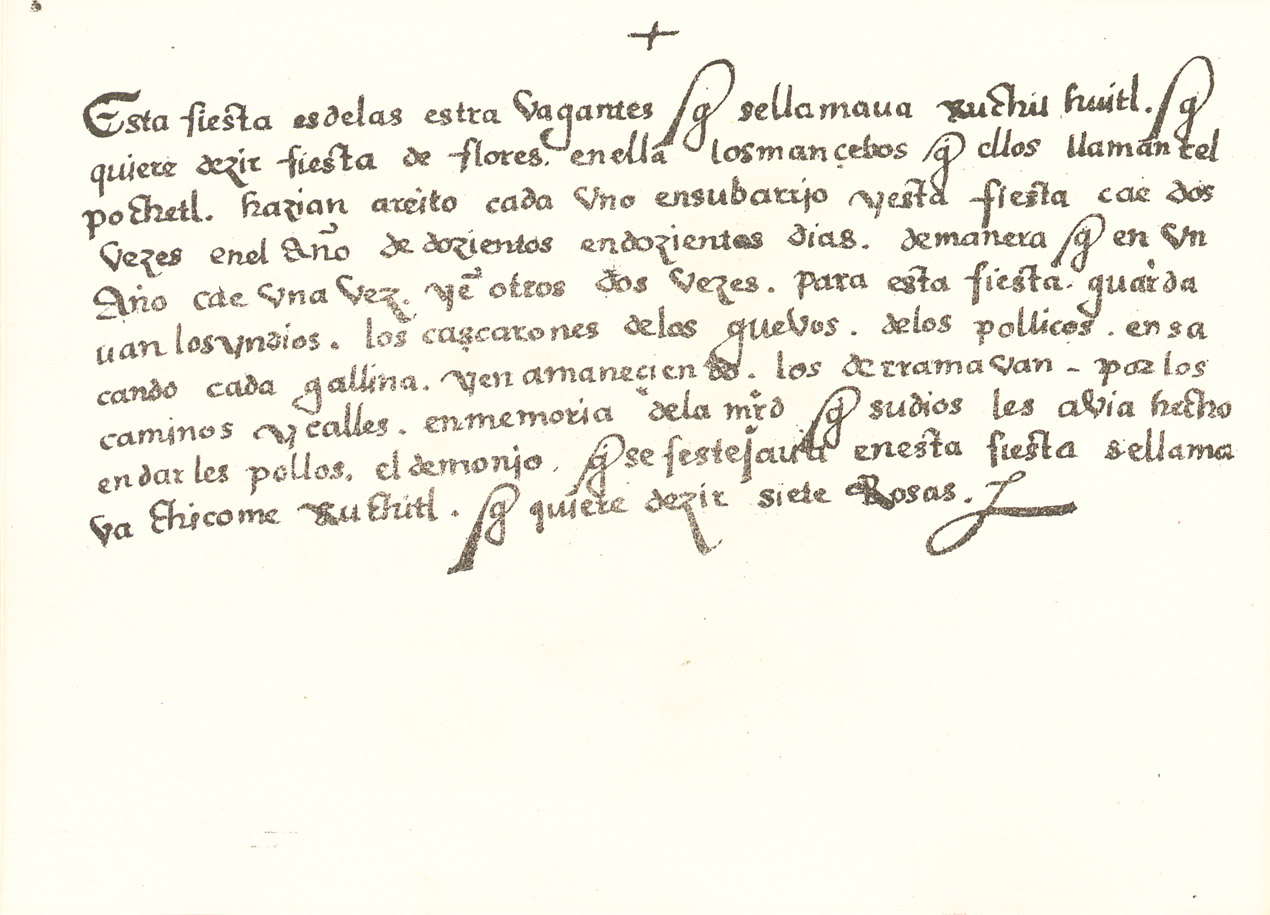 +
Esta fiesta es delas estra Vagantes q̃ sellamaua xuchil huitl. q̃
quiere dezir fiesta de flores. enella los mançebos q̃ ellos llaman tel
pochetl. hazian areito cada Vno ensubarrjo y esta fiesta cae dos
Vezes enel Año de dozientos en dozientos dias. demanera q̃ en Vn
Año cae Vna Vez. y ẽ otros dos Vezes. para esta fiesta. guarda
uan los yndios. los cascarones delos guevos. delos pollicos. en sa
cando cada gallina. y en amaneçiendo. los derramavan - por los
caminos y calles. en memoria dela mrd q̃ sudios les avia hecho
en dar les pollos. el demonjo. q̃ se festejaua enesta fiesta sellama
va chicome xuchitl. q̃ quiere dezir siete Rosas.